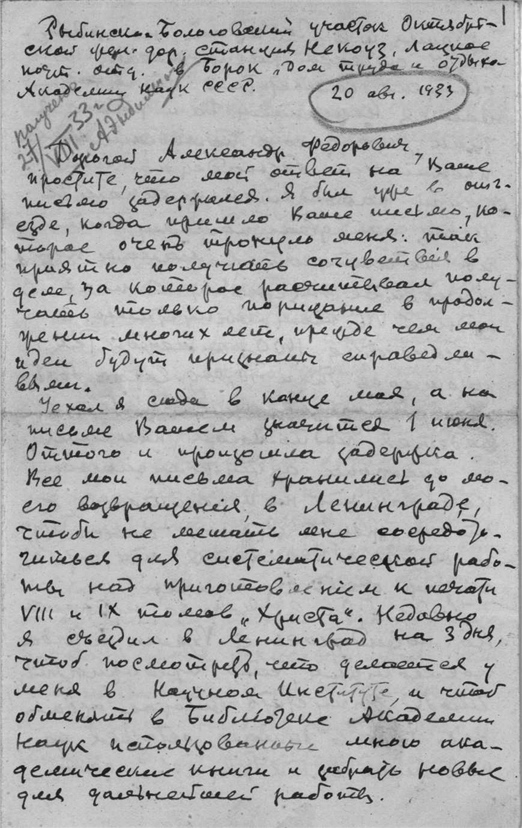 1
Рыбинско-Бологовский участок Октябрь-
ской жел. дор. станция Некоуз, Лацкое
почт. отд. в Борок „Дом труда и отдыха
Академии Наук СССР.
20 авг. 1933
Получено
27/VIII 33 г.
Дорогой Александр Федорович,
простите, что мой ответ на Ваше
письмо задержался. Я был уже в отъ-
езде, когда пришло Ваше письмо, ко-
торое очень тронуло меня: так
приятно получать сочувствия в
деле, за которое рассчитывал полу-
чать только порицание в продол-
жении многих лет, прежде чем мои
идеи будут признаны справедли-
выми.
Уехал я сюда в конце мая, а на
письме Вашем значится 1 июня.
Оттого и произошла задержка.
Все мои письма хранились до мо-
его возвращения в Ленинграде,
чтобы не мешать мне сосредото-
читься для систематической рабо-
ты над приготовлением к печати
VIII и IX томов „Христа“. Недавно
я съездил в Ленинград на 3 дня,
чтоб посмотреть, что делается у
меня в Научном Институте, и чтоб
обменять в Библиотеке Академии
Наук использованные мною ака-
демические книги и забрать новые
для дальнейшей работы.